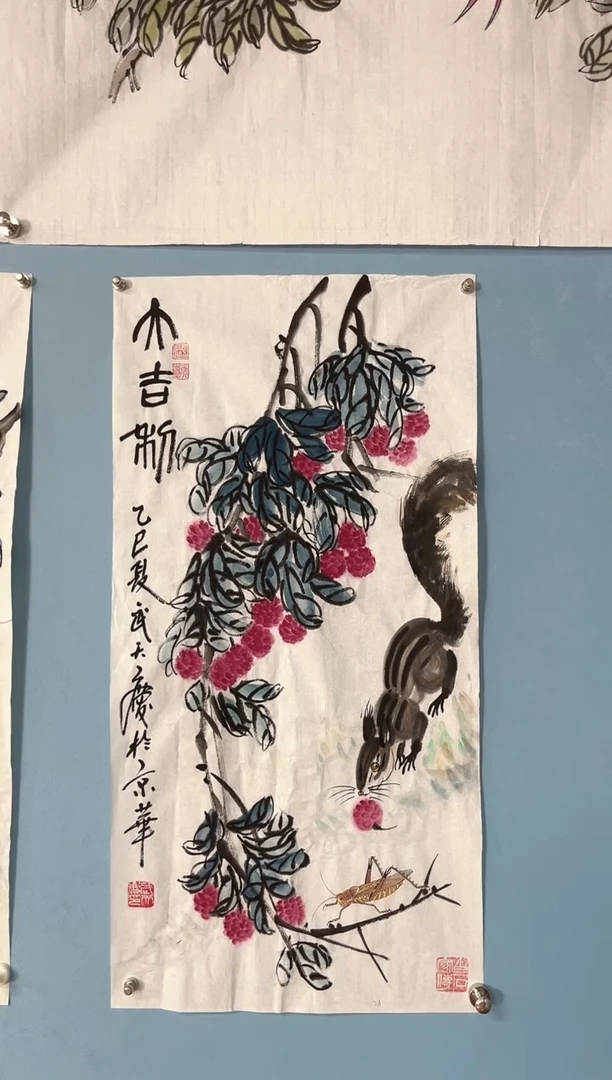 大吉利
乙巳夏武大庆於京華